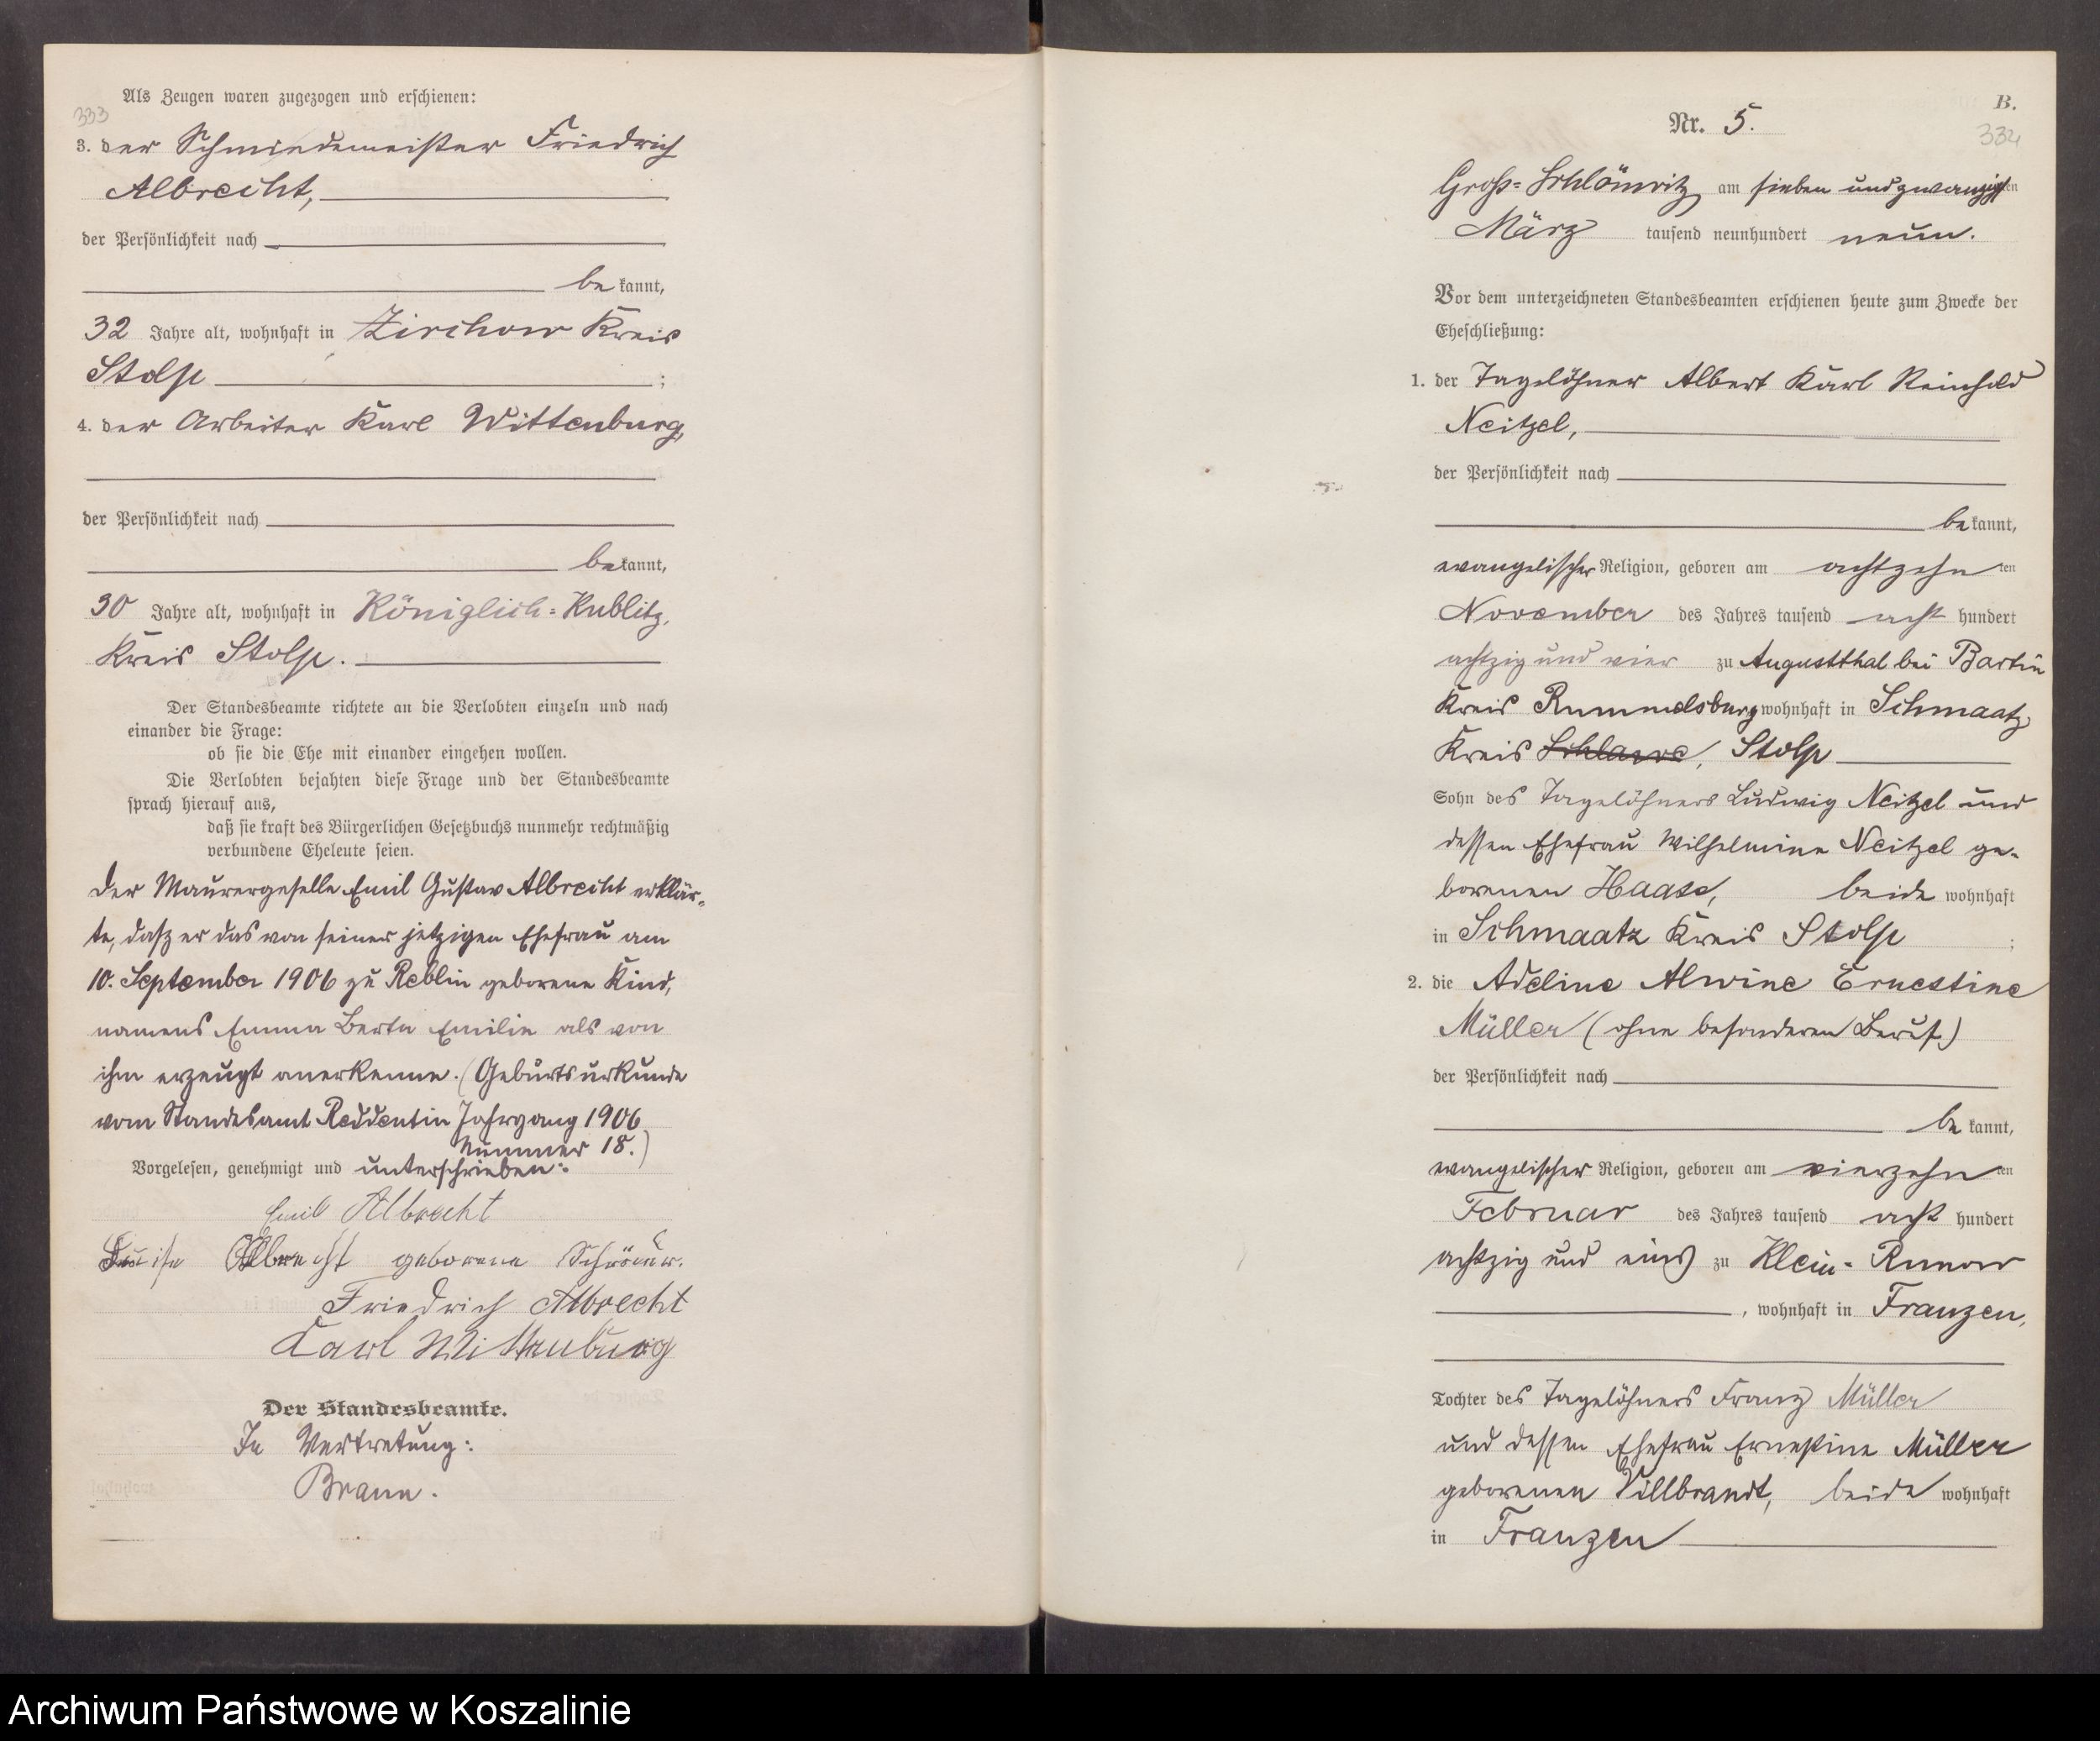 Als Zeugen waren zugezogen und erschienen:
333
3. der Schmiedemeister Friedrich
Albrecht,
der Persönlichkeit nach
bekannt,
32 Jahre alt, wohnhaft in Zirchow Kreis
Stolp ;
4. der Arbeiter Karl Wittenburg,
der Persönlichkeit nach
bekannt,
30 Jahre alt, wohnhaft in Königlich-Kublitz,
Kreis Stolp.
Der Standesbeamte richtete an die Verlobten einzeln und nach
einander die Frage:
ob sie die Ehe mit einander eingehen wollen.
Die Verlobten bejahten diese Frage und der Standesbeamte
sprach hierauf aus,
daß sie kraft des Bürgerlichen Gesetzbuchs nunmehr rechtmäßig
verbundene Eheleute seien.
Der Maurergeselle Emil Gustav Albrecht erklär-
te, daß er das von seiner jetzigen Ehefrau am
10. September 1906 zu Reblin geborene Kind,
namens Emma Berta Emilie als von
ihm erzeugt anerkenne. (Geburtsurkunde
vom Standesamt Reddentin Jahrgang 1906
Nummer 18.)
Vorgelesen, genehmigt und unterschrieben:
Emil Albrecht
Luise Albrecht geborene
Friedrich Albrecht
Karl Wittenburg
Der Standesbeamte.
In Vertretung:
Brann.
B.
Nr. 5.
334
Groß-Schlönwitz, am sieben und zwanzigsten
März tausend neunhundert neun.
Vor dem unterzeichneten Standesbeamten erschienen heute zum Zwecke der
Eheschließung:
1. der Tagelöhner Albert Karl Reinhold
Neitzel,
der Persönlichkeit nach
bekannt,
evangelischer Religion, geboren am achtzehnten
November des Jahres tausend acht hundert
achtzig und vier zu Augustthal bei Bartin
Kreis Rummelsburg wohnhaft in Schmaatz,
Kreis Schlawe, Stolp
Sohn des Tagelöhners Ludwig Neitzel und
dessen Ehefrau Wilhelmine Neitzel ge-
borenen Haase, beide wohnhaft
in Schmaatz Kreis Stolp ;
2. die Adeline Alwine Ernestine
Müller (ohne besonderen Beruf)
der Persönlichkeit nach
bekannt,
evangelischer Religion, geboren am vierzehnten
Februar des Jahres tausend acht hundert
achtzig und eins zu Klein-Runow
, wohnhaft in Franzen,
Tochter des Tagelöhners Franz Müller
und dessen Ehefrau Ernestine Müller
geborenen Villbrandt, beide wohnhaft
in Franzen
Archiwum Państwowe w Koszalinie